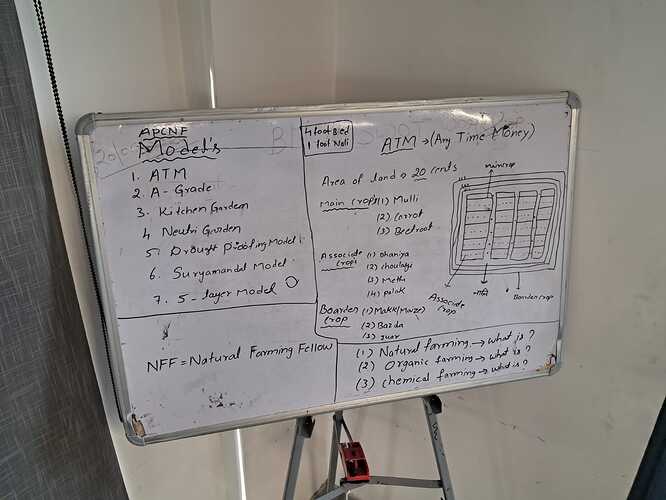 APCNF
Model's
1. ATM
2. A- Grade
3. Kitchen Garden
4 Neutri Garden
5. Drought Proofing Model
6. Suryamandal Model
7. 5-layer Model
NFF = Natural Farming Fellow
4 foot Bed
1 foot Nali
ATM → (Any Time Money)
Area of land → 20 cents
Main Crops (1) Mulli
(2) Carrot
(3) Beetroot
Associate Crops (1) Dhaniya
(2) Choulayi
(3) Methi
(4) Palak
Boarder Crop (1) Makk (Maize)
(2) Bazda
(3) Juar
main crop
Associate Crop
Nali
Boarder crop
(1) Natural farming → what is ?
(2) Organic farming → what is ?
(3) chemical farming → what is ?